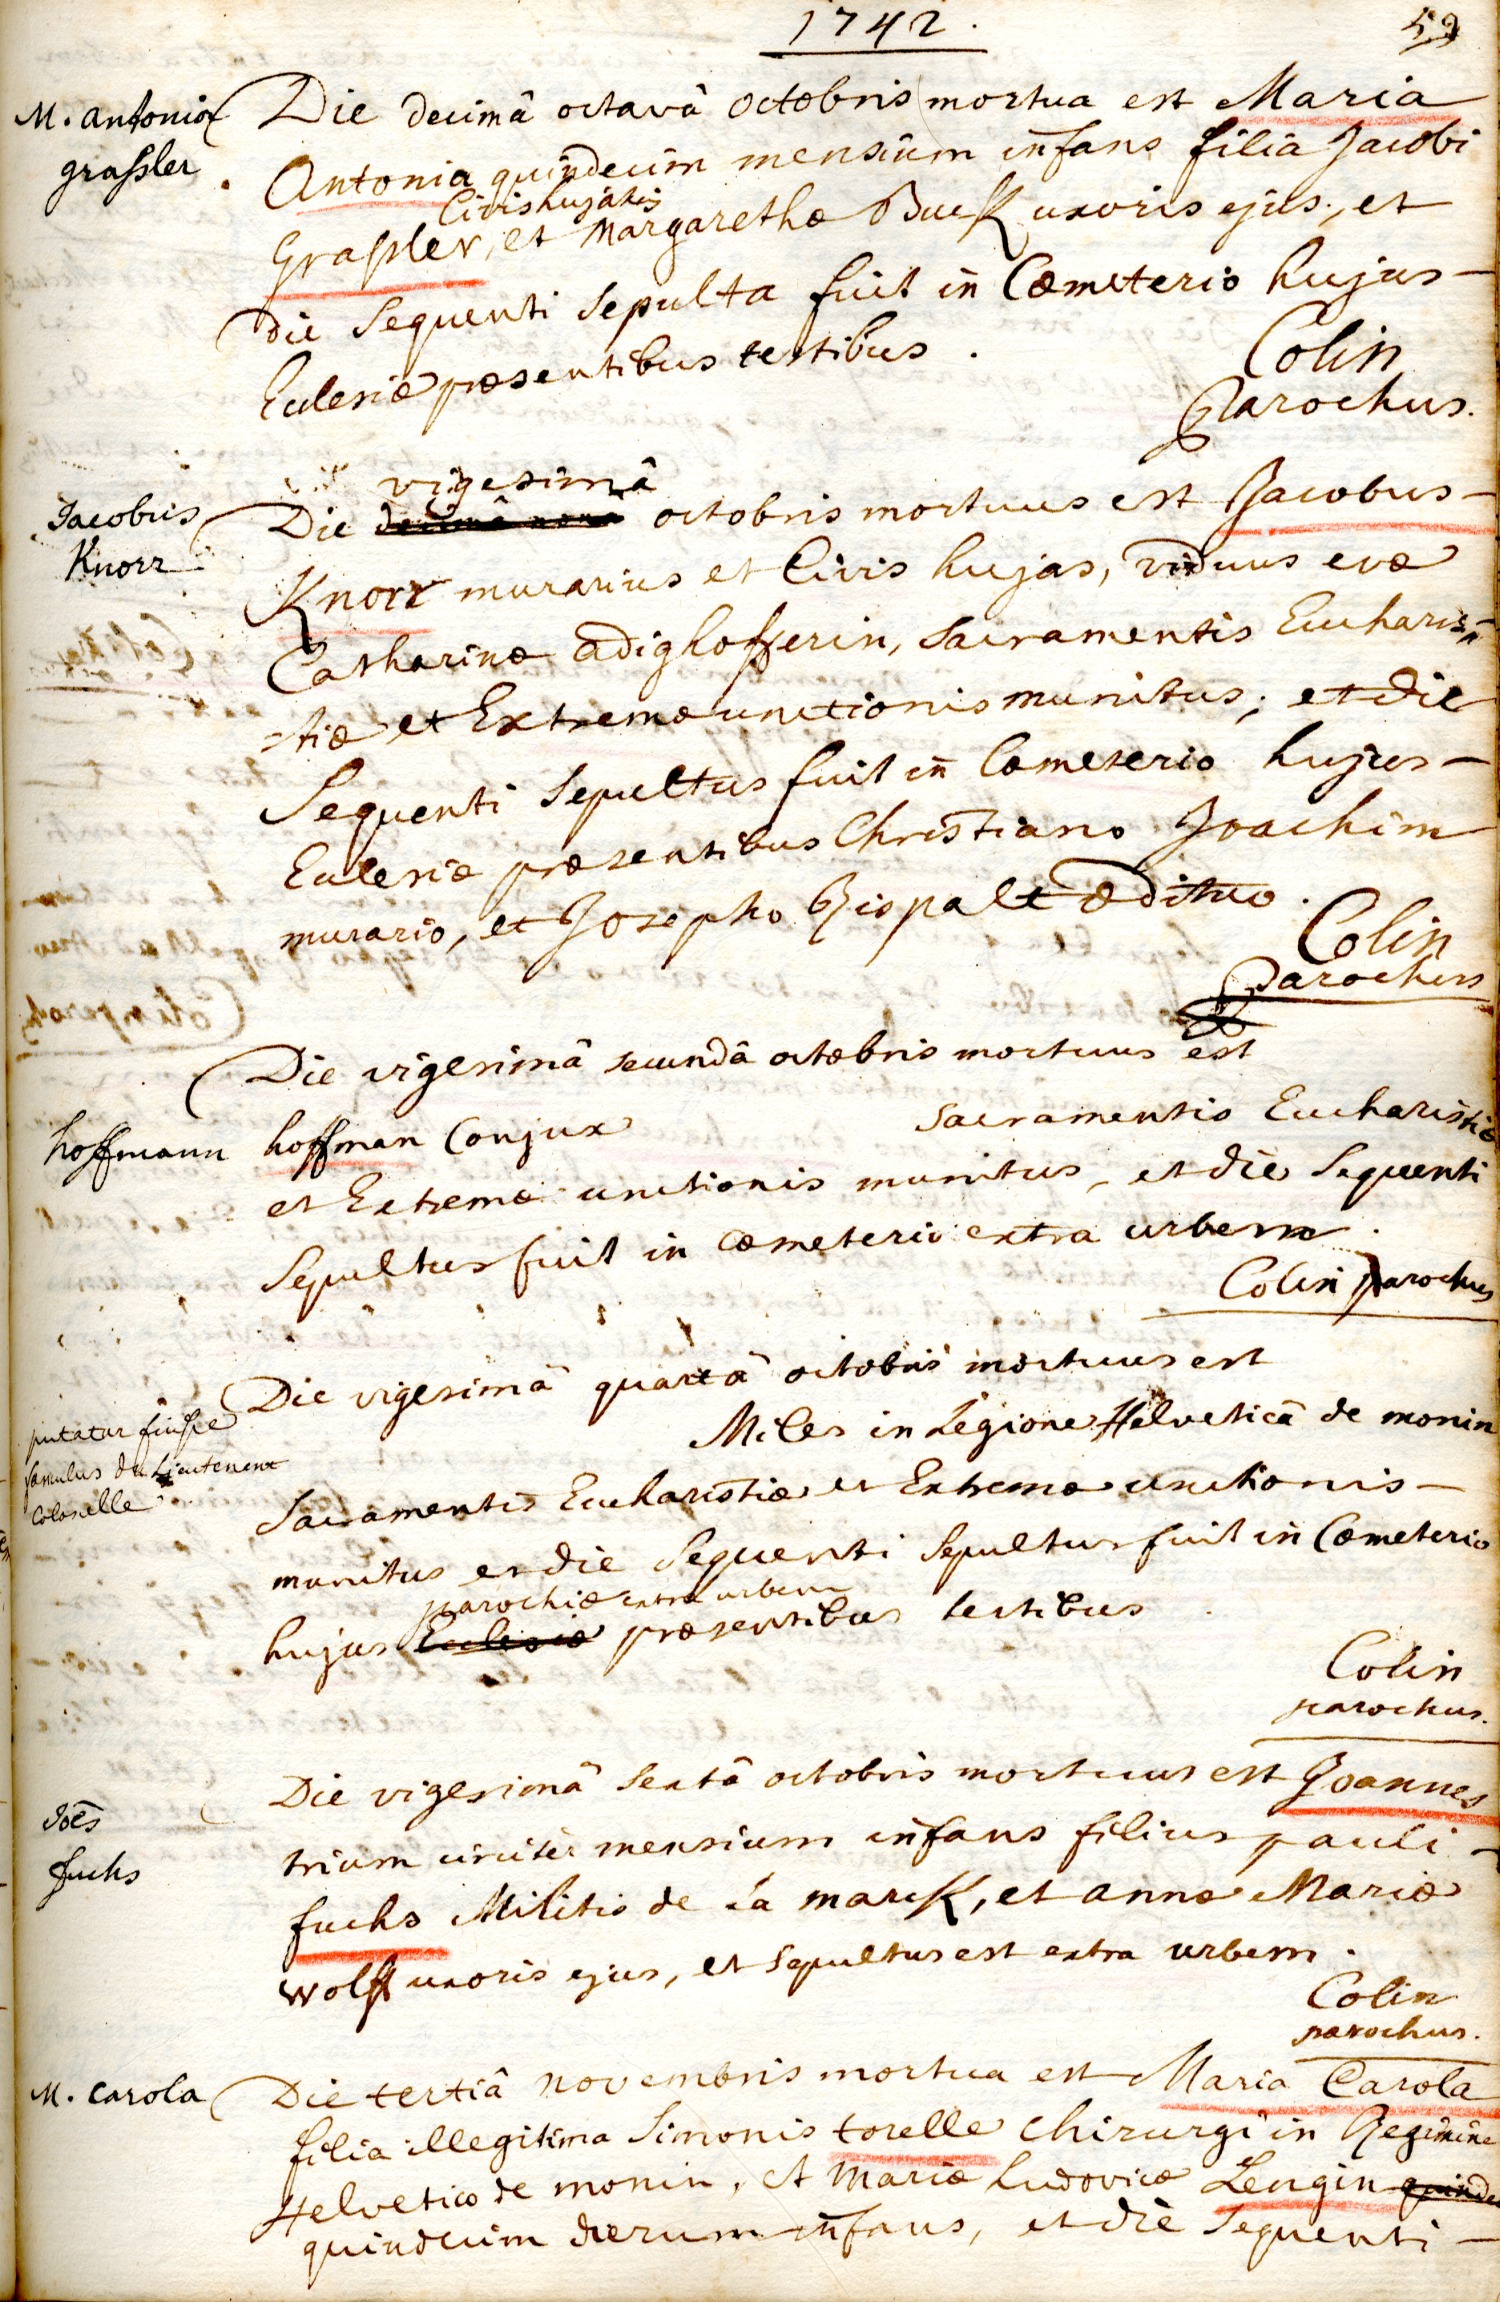 1742.
59
M. antonia
grassler
Die decimâ octavâ octobris mortua est Maria
Antonia quindecim mensium infans filia Jacobi
Civis hujatis
Grassler, et Margarethæ Buck uxoris ejus, et
die sequenti sepulta fuit in Cœmeterio hujus
Eclesiæ præsentibus testibus.
Colin
Parochus.
Jacobus
Knorr
vigesimâ
Die decimâ nona octobris mortuus est Jacobus
Knorr murarius et Civis hujas, viduus evæ
Catharinæ adighofferin, sacramentis Eucharis=
=tiæ et Extremæ unctionis munitus; et die
Sequenti Sepultus fuit in Cœmeterio hujus
Eclesiæ præsentibus Christiano Joachim
murario, et Josepho Gispalt ædituo.
Colin
Parochus
Die vigesimâ secundâ octobris mortuus est
hoffmann
hoffman Conjux sacramentis Eucharistiæ
et Extremæ unctionis munitus, et die sequenti
Sepultus fuit in cœmeterio extra urbem.
Colin parochus
Die vigesimâ quartâ octobris mortuus est
putatur fuisse
famulus du Lieutenent
Colonelle
Miles in Legione Helveticâ de monin
Sacramentis Eucharistiæ et Extremæ unctionis
munitus et die Sequenti Sepultus fuit in Cœmeterio
parochiæ extra urbem
hujus Eclesiæ præsentibus testibus
Colin
parochus.
Joēs
fuchs
Die vigesimâ sextâ octobris mortuus est Joannes
trium circiter mensium infans filius pauli
fuchs Militis de La marck, et annæ Mariæ
wolff uxoris ejus, et sepultus est extra urbem.
Colin
parochus.
M. Carola
Die tertiâ novembris mortua est Maria Carola
filia illegitima Simonis torelle Chirurgi in Regimine
Helvetico de monin, et Mariæ Ludovicæ Lengin quinde
quindecim dierum infans, et die sequenti